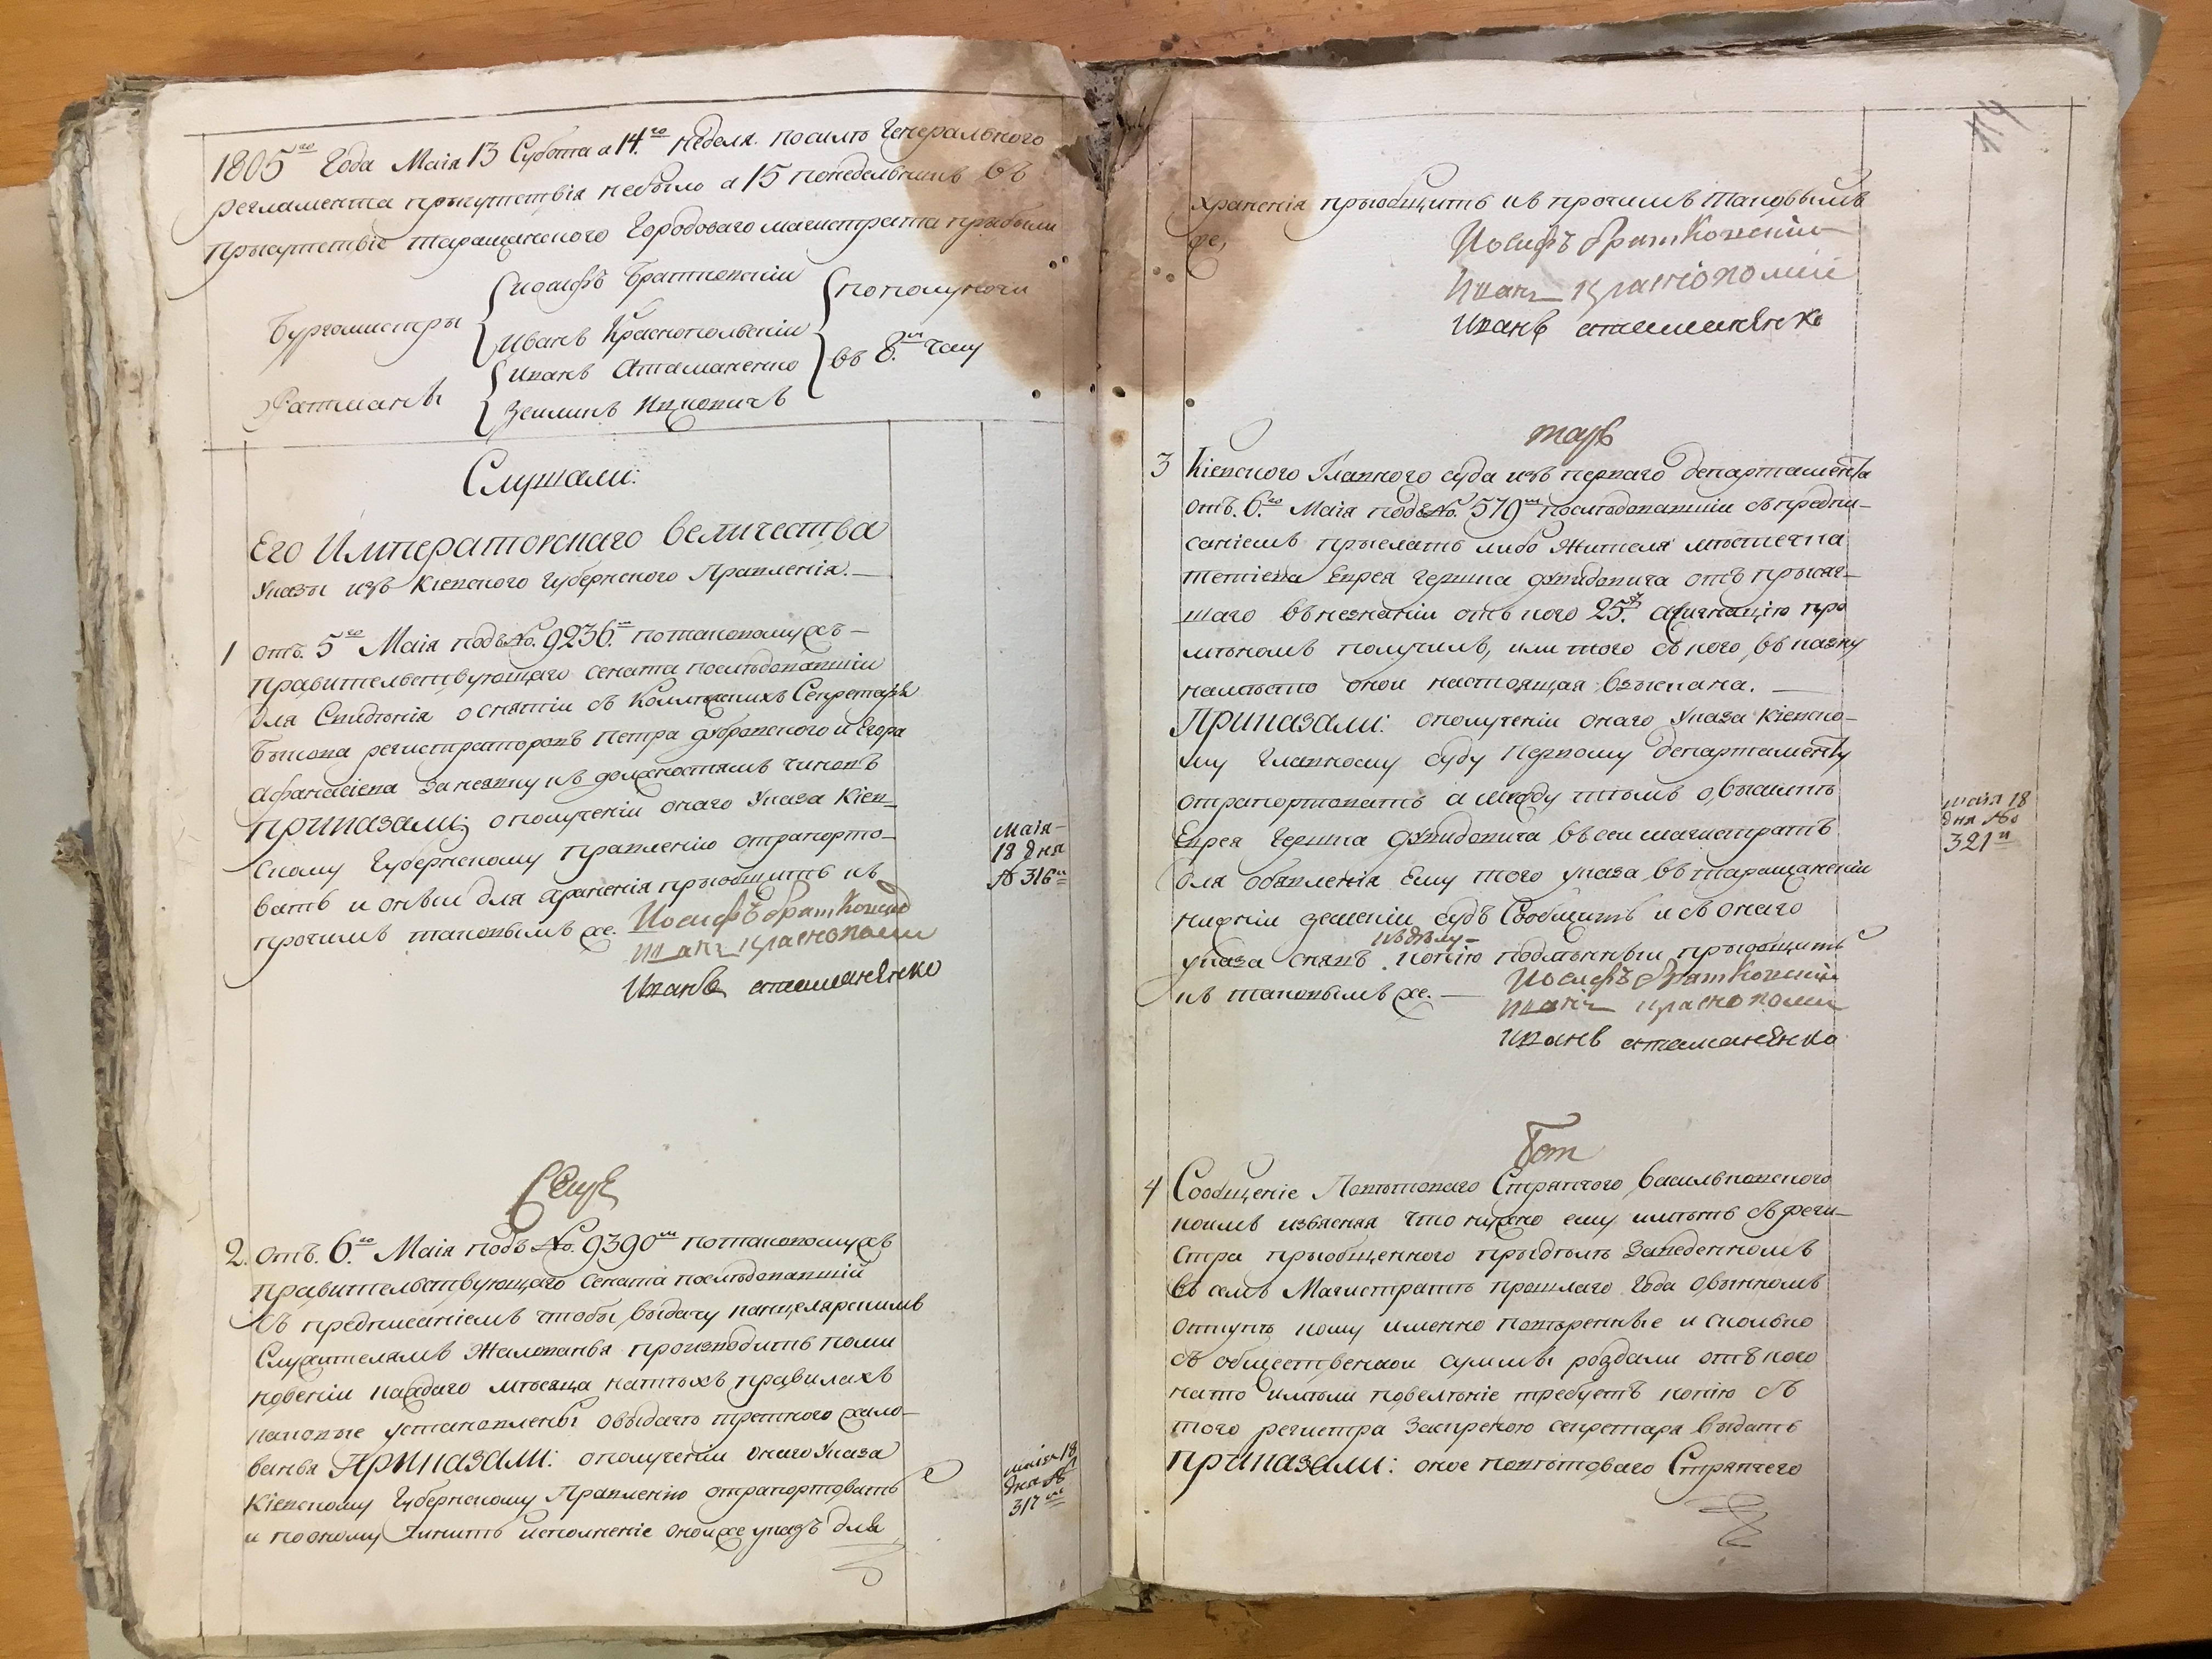 1805го Года Маія 13 Субота а 14го неделя. по силѣ Генерального
регламента прысутствія небыло а 15 понедельникъ въ
Прысутствіе таращанского Городоваго магистрата прыбыли
Бургомистры
Иосифъ Братковскіи
Иванъ Краснопольскіи
Ратманы
Иванъ Атаманенко
Зелманъ Ицковичъ
пополуночи
въ 8м часу
Слушали:
Его Императорскаго величества
Указы изъ Кіевского Губернского Правленія.—
1 отъ. 5го Маія подъ №. 9236.м по таковомужъ—
правительствующаго сената последовавшіи
для Сведѣнія о снятіи съ Коллежскихъ Секретаря
Быкова регистраторовъ Петра Дубровского и Егора
Афанасіева за неявку къ должностямъ чиновъ
приказали; о получѣніи онаго Указа Кіев—
скому Губернскому правленію отрапорто—
вать и онъи для храненія прыобщить къ
прочимъ таковымъ же. Иосифъ Братковскіи
Иванъ Краснополски
Иванъ атаманѣнко
Маія—
18 дня
№ 316м
2. отъ. 6го Маія подъ №. 9390м по таковомужъ
правительствующаго Сената последовавшій
съ предписаніемъ чтобы выдачу канцелярскимъ
Служителямъ Жалованья производить помы
новеніи каждаго мѣсяца на тѣхъ правилахъ
каковые установлены о выдачѣ третного жало—
ванья Приказали: о получѣніи онаго Указа
Кіевскому Губернскому Правленію отрапортовать
и по оному чинить исполненіе онои же указъ для
маія 18
дня №
317м
храненія прыобщить къ прочимъ таковымъ
же,
Иосифъ Братковскіи
Иванъ Краснополскіи
Иванъ атаманѣнко
тажъ
3 Кіевского Главного суда изъ перваго департамента
отъ. 6го Маія подъ №. 579м последовавшіи съ предпи—
саніемъ прыслать либо Жителя мѣстечка
тетіева Еврея Гершка Давидовича отъ прысяг—
шаго въ незнаніи отъ кого 25р. асигнацію про
мѣномъ получилъ, или того съ кого, въ казну
на мѣсто онои настоящая взыскана.—
Приказали: о получѣніи онаго Указа Кіевско—
му Главному суду Первому департаменту
отрапортовать а между тѣмъ о высылкѣ
Еврея Гершка Давидовича въ сеи магистратъ
для объявленія Ему того указа въ таращанскіи
нижніи земскіи судъ Сообщить и съ онаго
къ дѣлу—
указа снявъ копію подлѣнныи прыобщить
къ таковымъ же.—
Иосифъ Братковскіи
Иванъ Краснополски
Иванъ атаманѣнко
маія 18
дня №
321м
4 Сообщеніе Повѣтоваго Стряпчого Васильковского
коимъ изъясняя что нужно ему имѣть съ реги—
стра прыобщенного прыдѣлѣ Заведенномъ
въ семъ Магистратѣ прошлаго Года о вынномъ
откупѣ кому именно повѣренные и сколько
съ общественнои суммы роздали отъ кого
на то имѣли повелѣніе требуетъ копію съ
того регистра за скрепою секретаря выдать
приказали: оное повѣтоваго Стряпчего